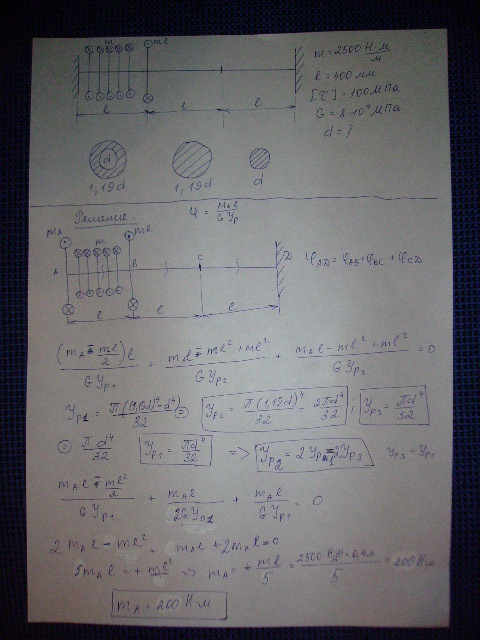 m
ml
m = 2500 Н·м/м
l = 400 мм
[τ] = 100 МПа
G = 8·10⁴ МПа
d = ?
l l l
d
1,19d 1,19d d
Решение.
φ = Mкl/GYp
mA m ml
A B C D
φAD = φAB + φBC + φCD
l l l
(mA - ml/2)l/GYp1 + (mAl - ml² + ml²)/GYp2 + (mAl - ml² + ml²)/GYp3 = 0
Yp1 = π((1,19d)⁴ - d⁴)/32 = Yp2 = π(1,19d)⁴/32 = 2πd⁴/32 ; Yp3 = πd⁴/32
= πd⁴/32 Yp1 = πd⁴/32 => Yp2 = 2Yp1 = 2Yp3 Yp3 = Yp1
(mAl - ml²/2)/GYp1 + mAl/2GYp1 + mAl/GYp1 = 0
2mAl - ml² + mAl + 2mAl = 0
5mAl = + ml² => mA = + ml/5 = 2500 Н·м/м · 0,4м/5 = 200 Н·м
mA = 200 Н·м